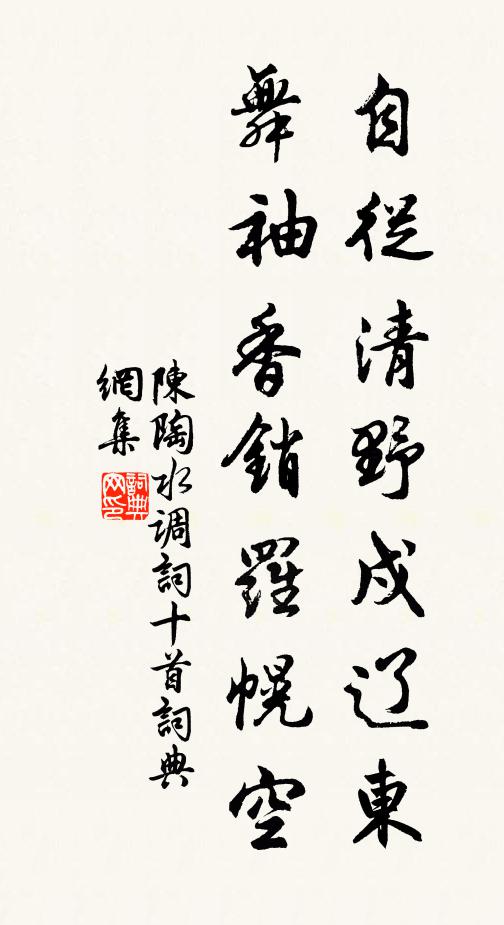 自從清野戍辽東
舞袖香銷羅幌空
陳陶水调詞十首詞典
網集
詞典
网印